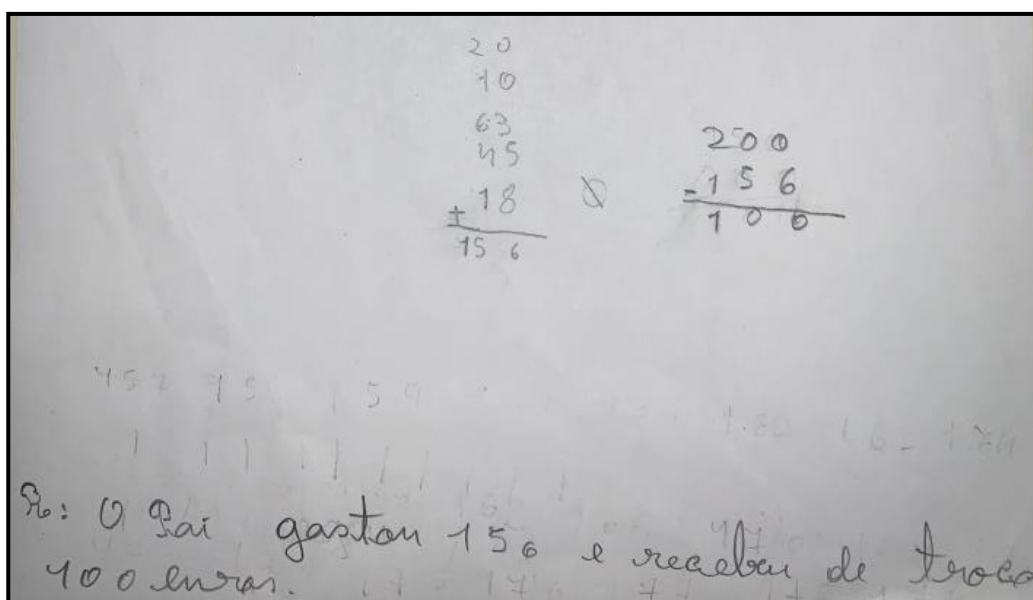 20
10
63
45
+ 18
156
200
- 156
100
R: O Pai gastou 156 e recebeu de troco
100 euros.